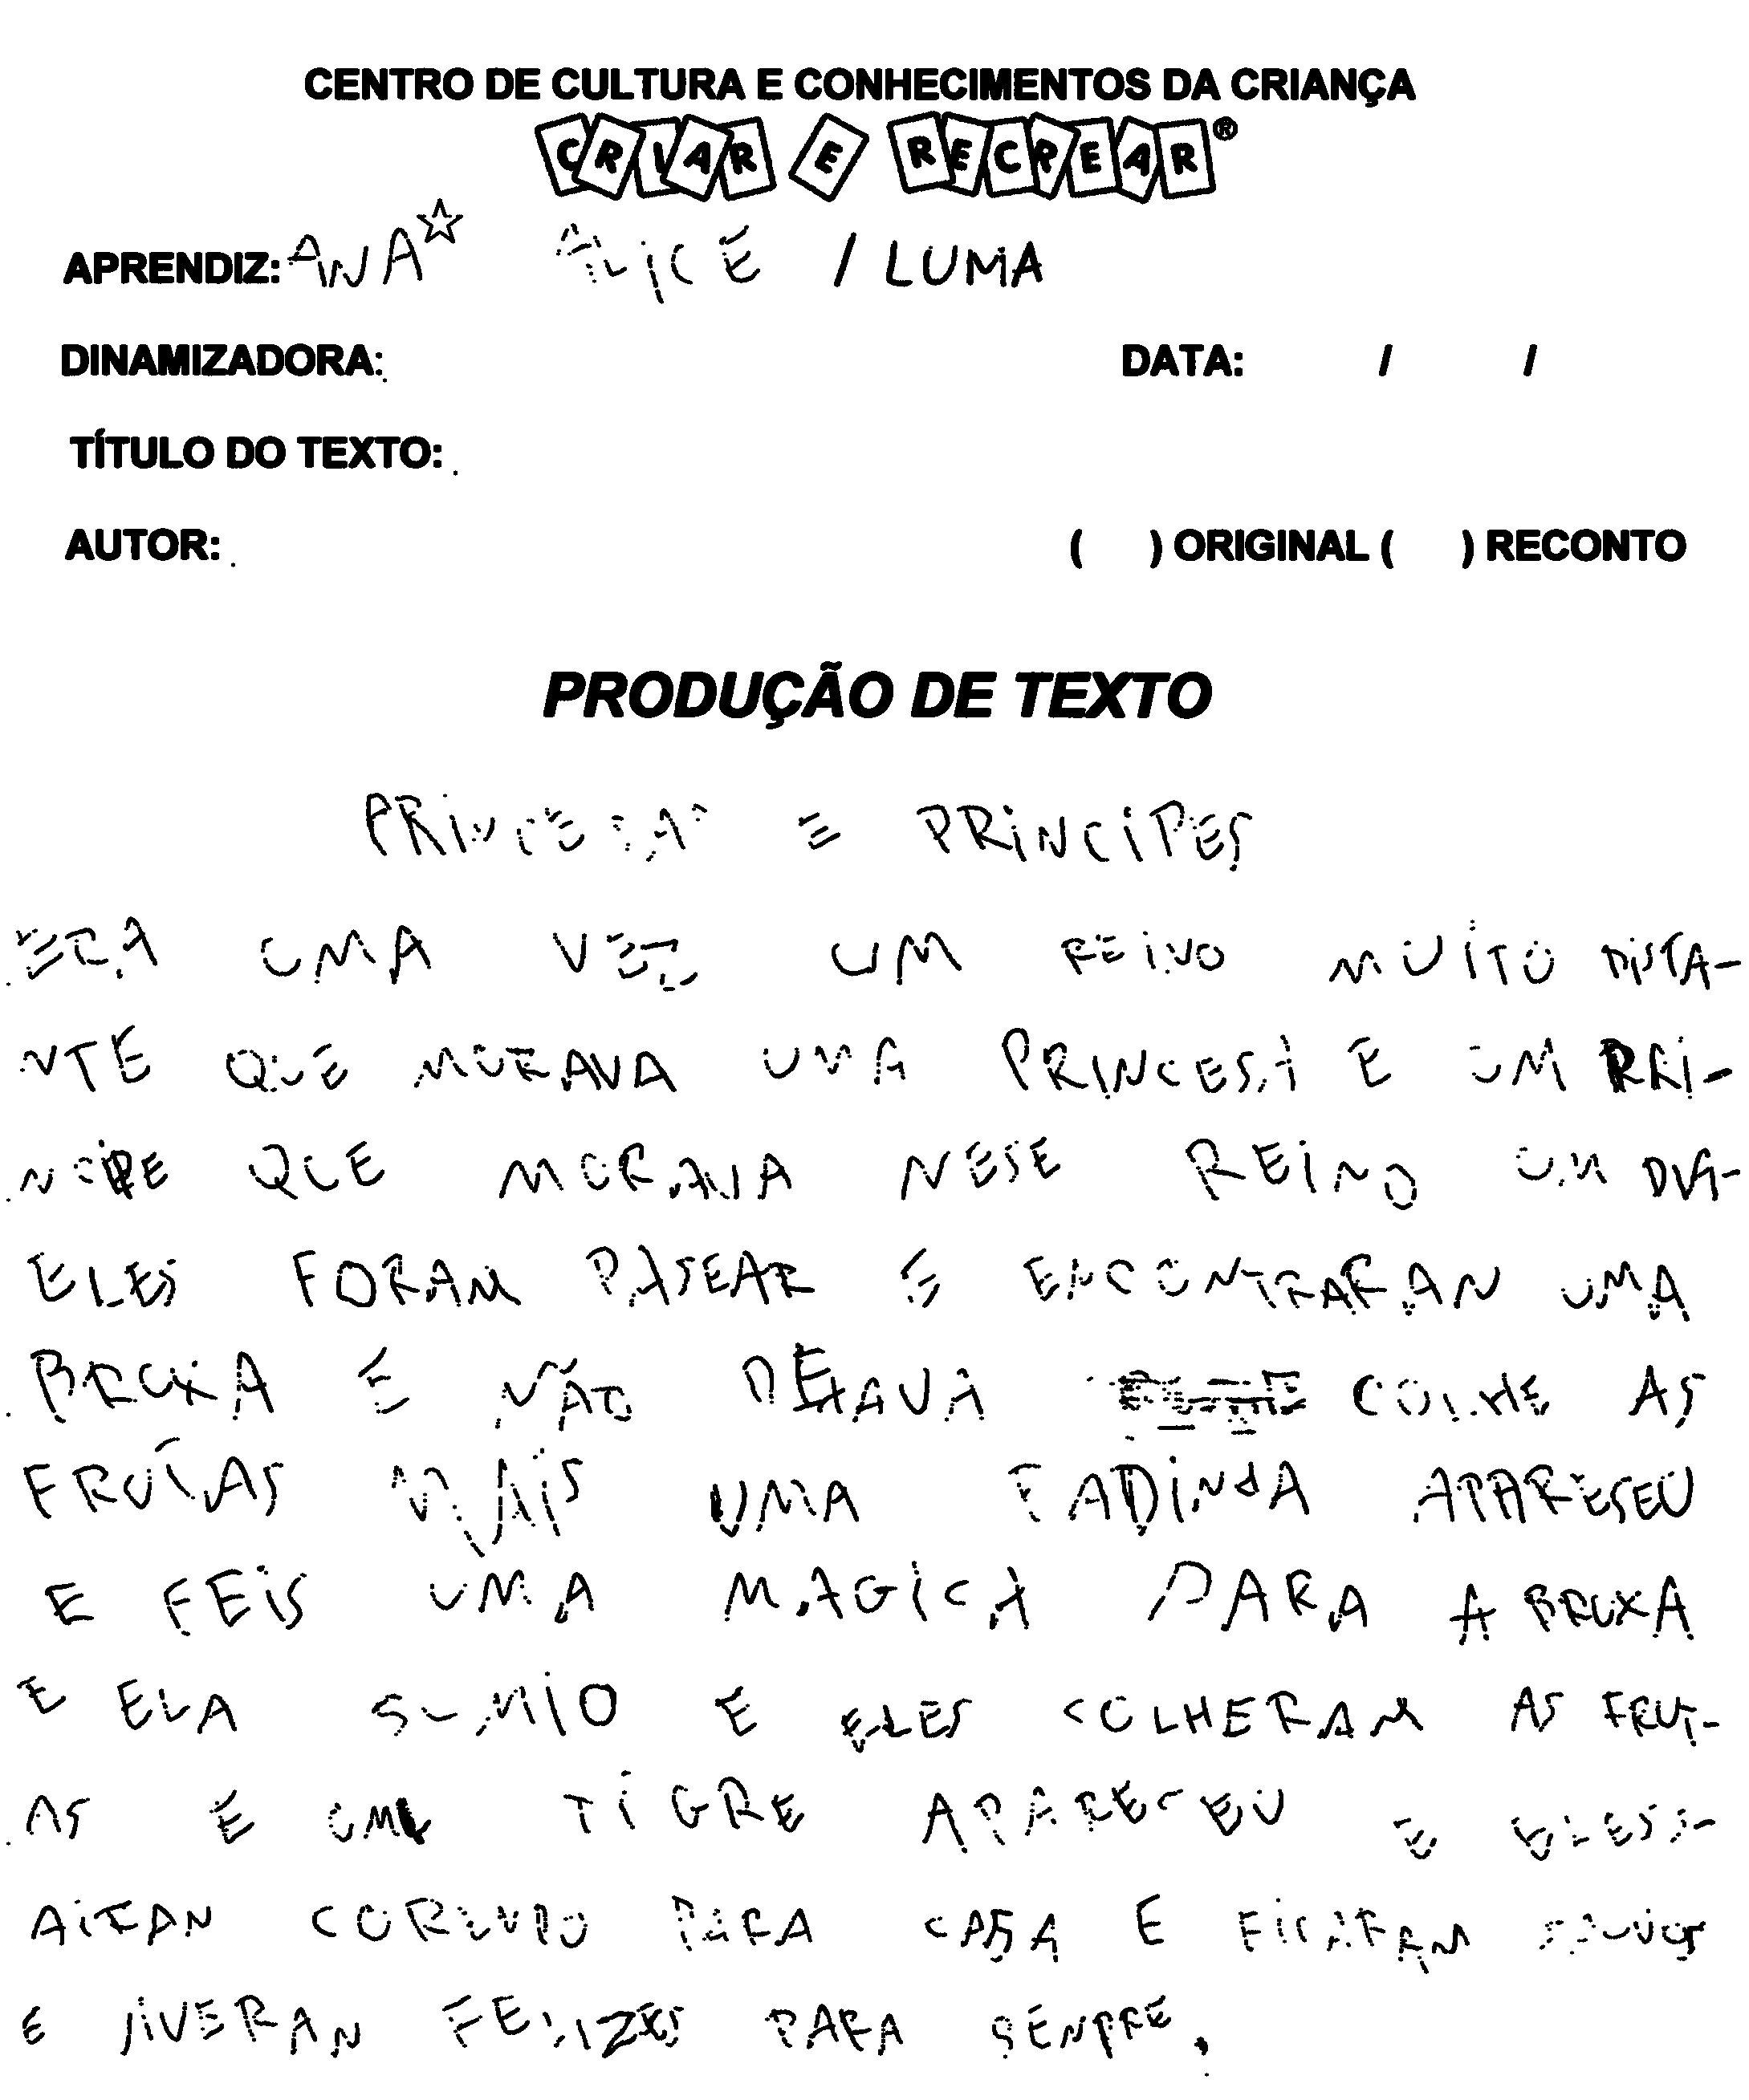 CENTRO DE CULTURA E CONHECIMENTOS DA CRIANÇA
CRIAR E RECREAR®
APRENDIZ: ANA ALICE / LUMA
DINAMIZADORA: DATA: / /
TÍTULO DO TEXTO:
AUTOR: ( ) ORIGINAL ( ) RECONTO
PRODUÇÃO DE TEXTO
PRINCESAS E PRINCIPES
ERA UMA VEZ UM REINO MUITO DISTA-
NTE QUE MORAVA UMA PRINCESA E UM PRI-
NCIPE QUE MORAVA NESE REINO UM DIA
ELES FORAM PASEAR E ENCONTRARAN UMA
BRUXA E NÃO DEXAVA COLHE AS
FRUTAS MAIS UMA FADINHA APARESEU
E FEIS UMA MAGICA PARA A BRUXA
E ELA SUMIO E ELES COLHERAM AS FRUT-
AS E UM TIGRE APARECEU E ELES S-
AIRAN CORENDO PARA CASA E FICARAM SALVOS
E VIVERAN FELIZES PARA SENPRE.